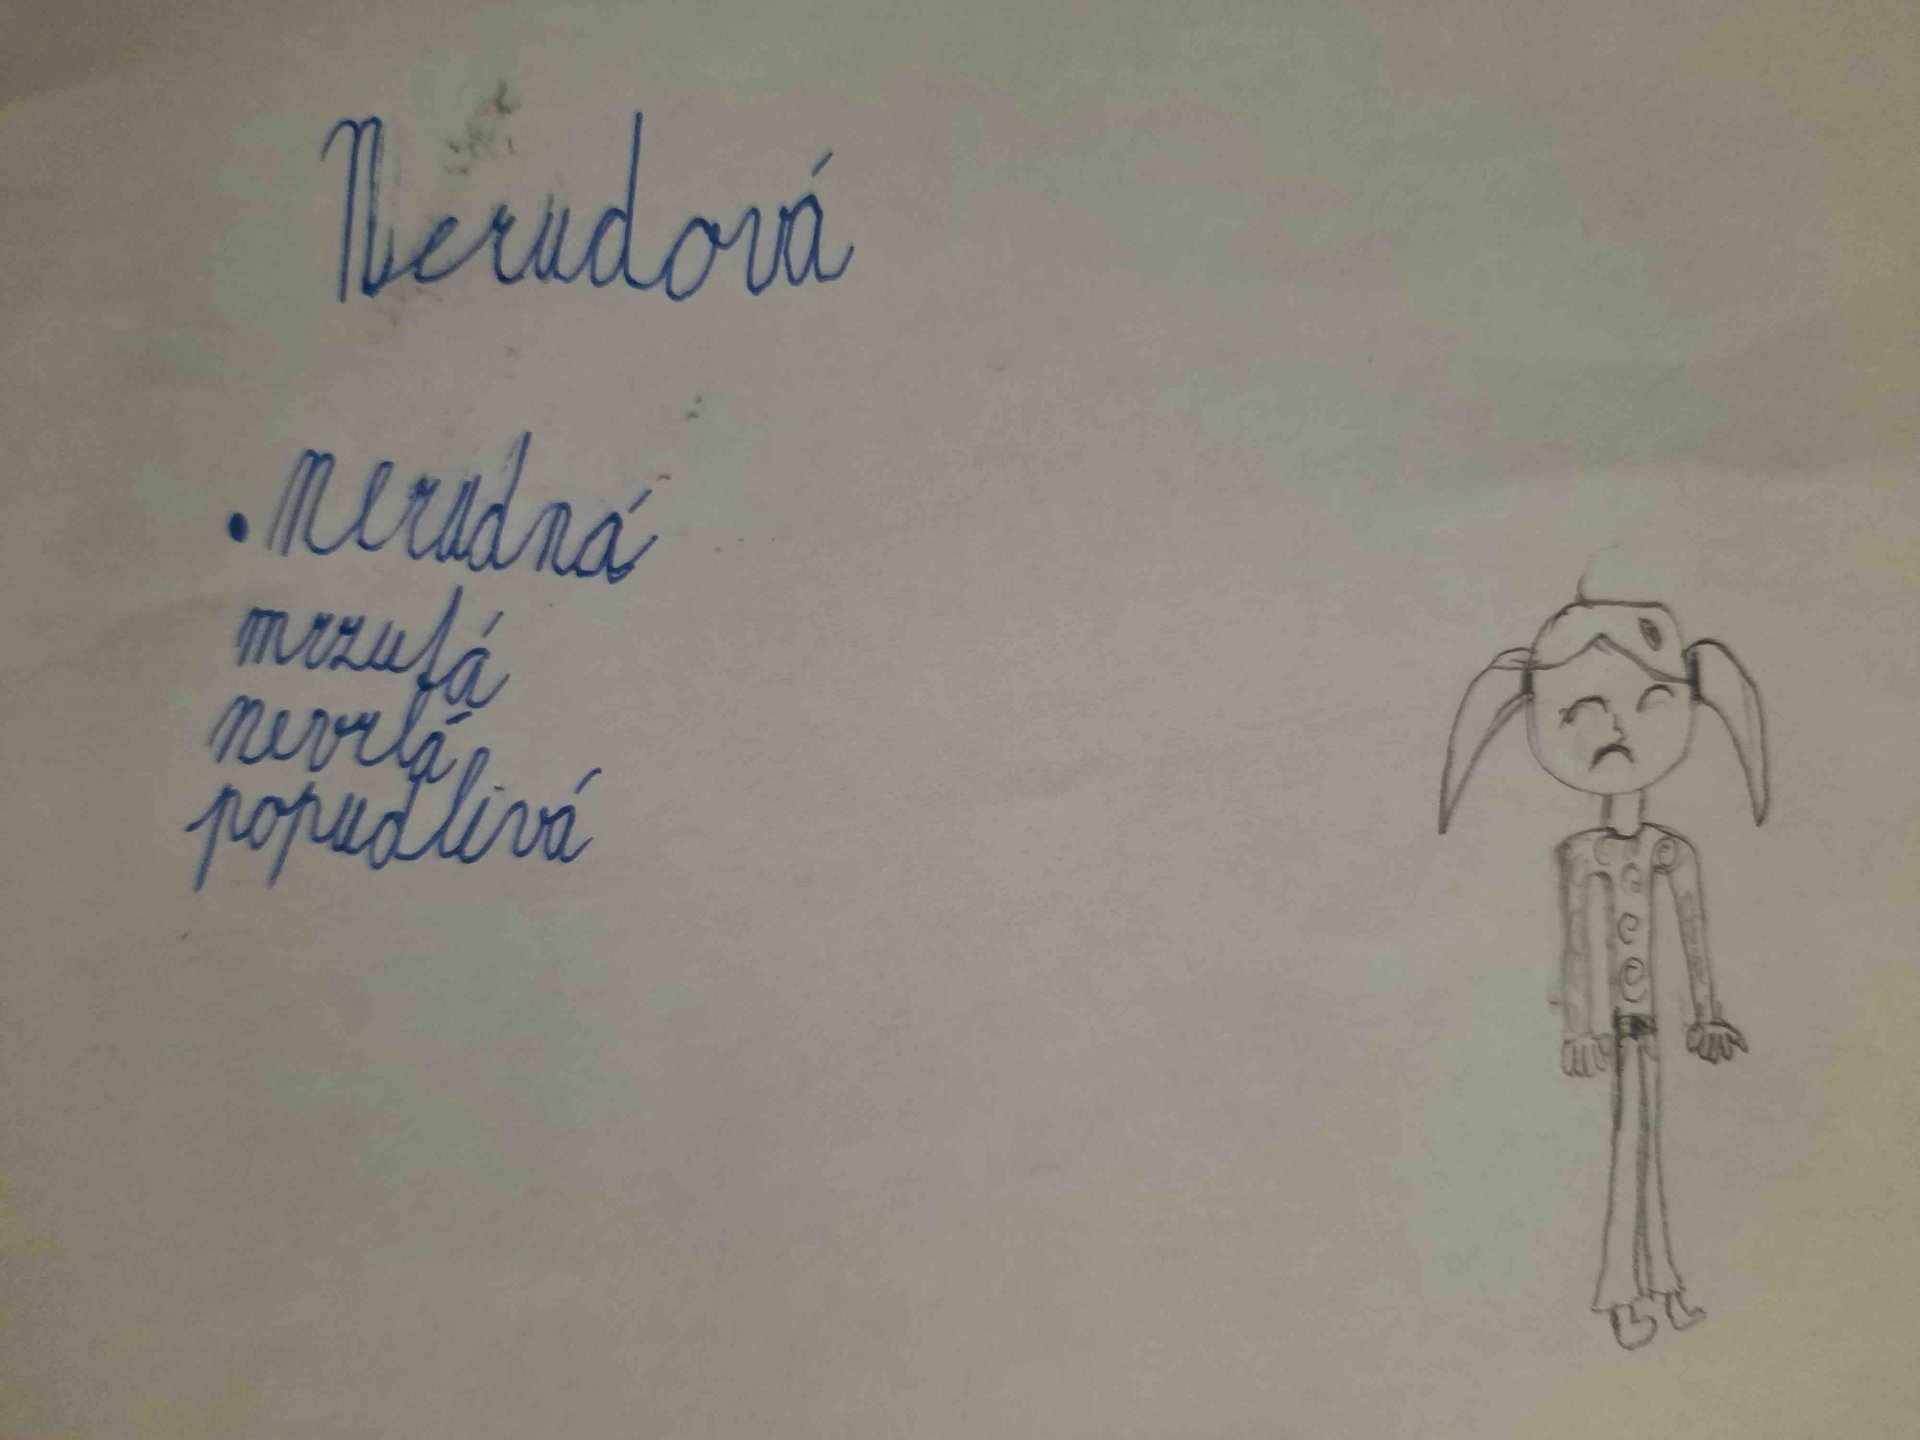 Nerudová
• nerudná
mrzutá
nevrlá
popudlivá